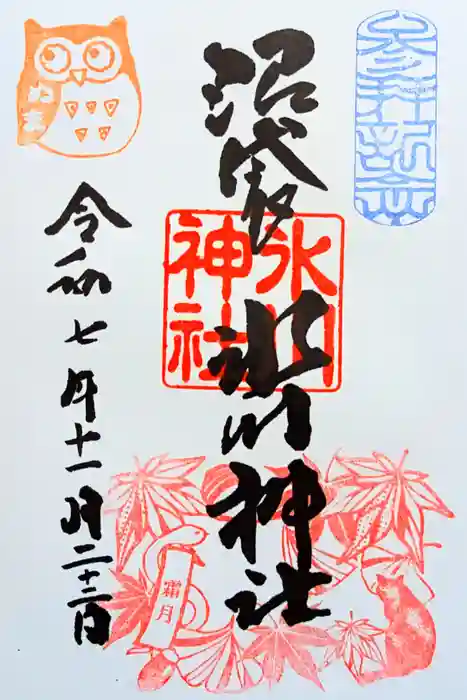 参拝記念
沼袋
氷川神社
氷川
神社
令和七年十一月二十三日
ぬま
霜月